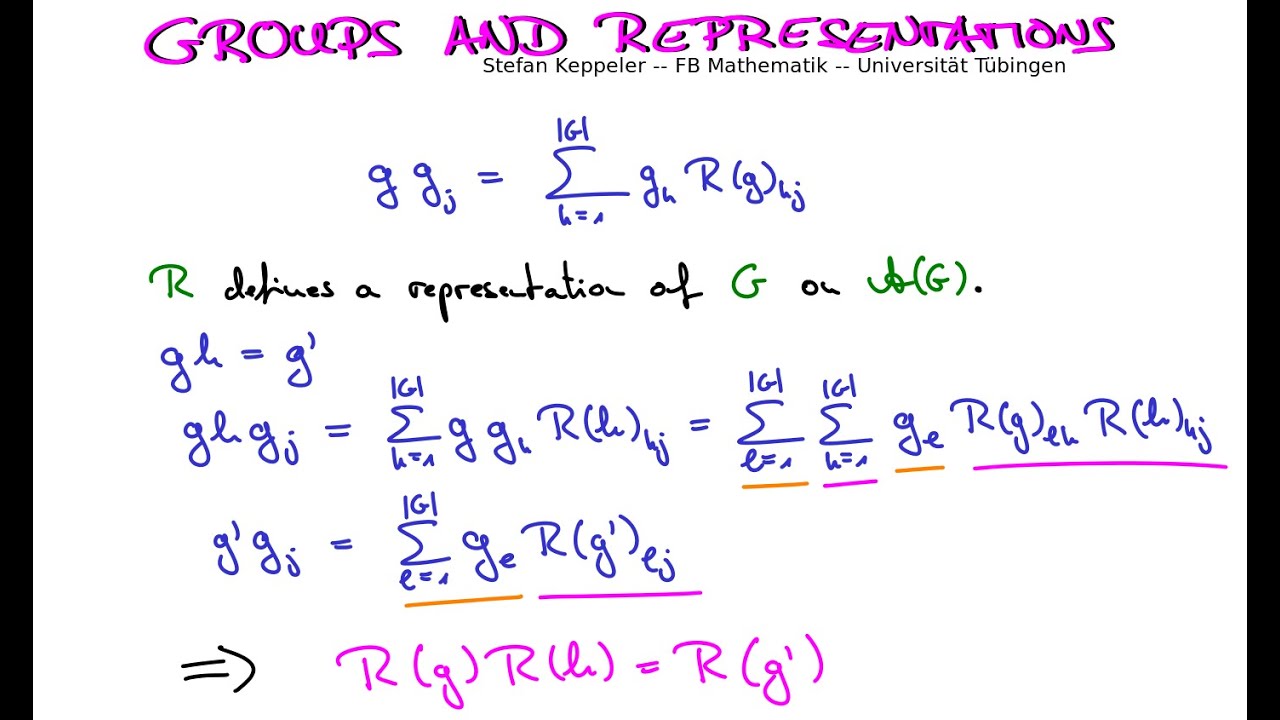 GROUPS AND REPRESENTATIONS
Stefan Keppeler -- FB Mathematik -- Universität Tübingen
g g_j = ∑_{k=1}^{|G|} g_k R(g)_{kj}
R defines a representation of G on A(G).
gh = g'
gh g_j = ∑_{k=1}^{|G|} g g_k R(h)_{kj} = ∑_{l=1}^{|G|} ∑_{k=1}^{|G|} g_l R(g)_{lk} R(h)_{kj}
g' g_j = ∑_{l=1}^{|G|} g_l R(g')_{lj}
⇒ R(g) R(h) = R(g')